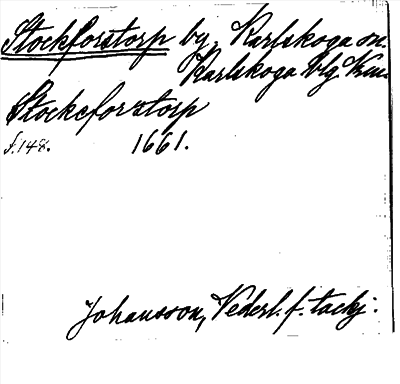 Stockforstorp by, Karlskoga sn.
Karlskoga blg. Km.
Stockeforstorp
f. 148. 1661.
Johansson, Nederl. f. tackj: